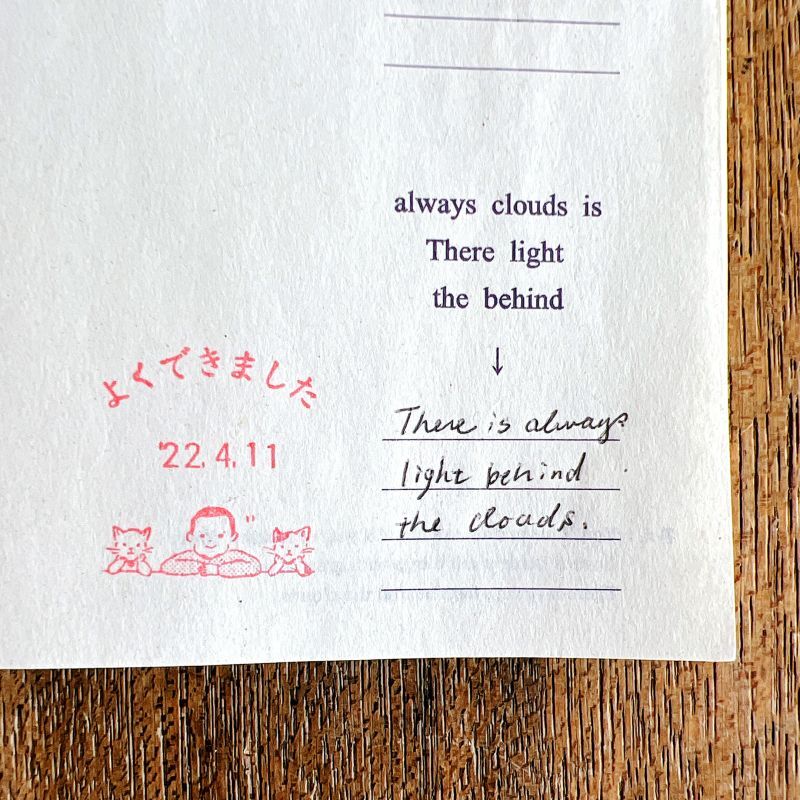 always clouds is
There light
the behind
↓
There is always
light behind
the clouds.
よくできました
'22.4.11